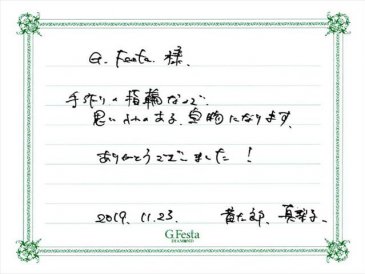 G. Festa. 様.
手作りの指輪なので
思い入れのある、宝物になります。
ありがとうございました!
2019. 11. 23. 貴太郎、真梨子.
G.Festa
DIAMOND